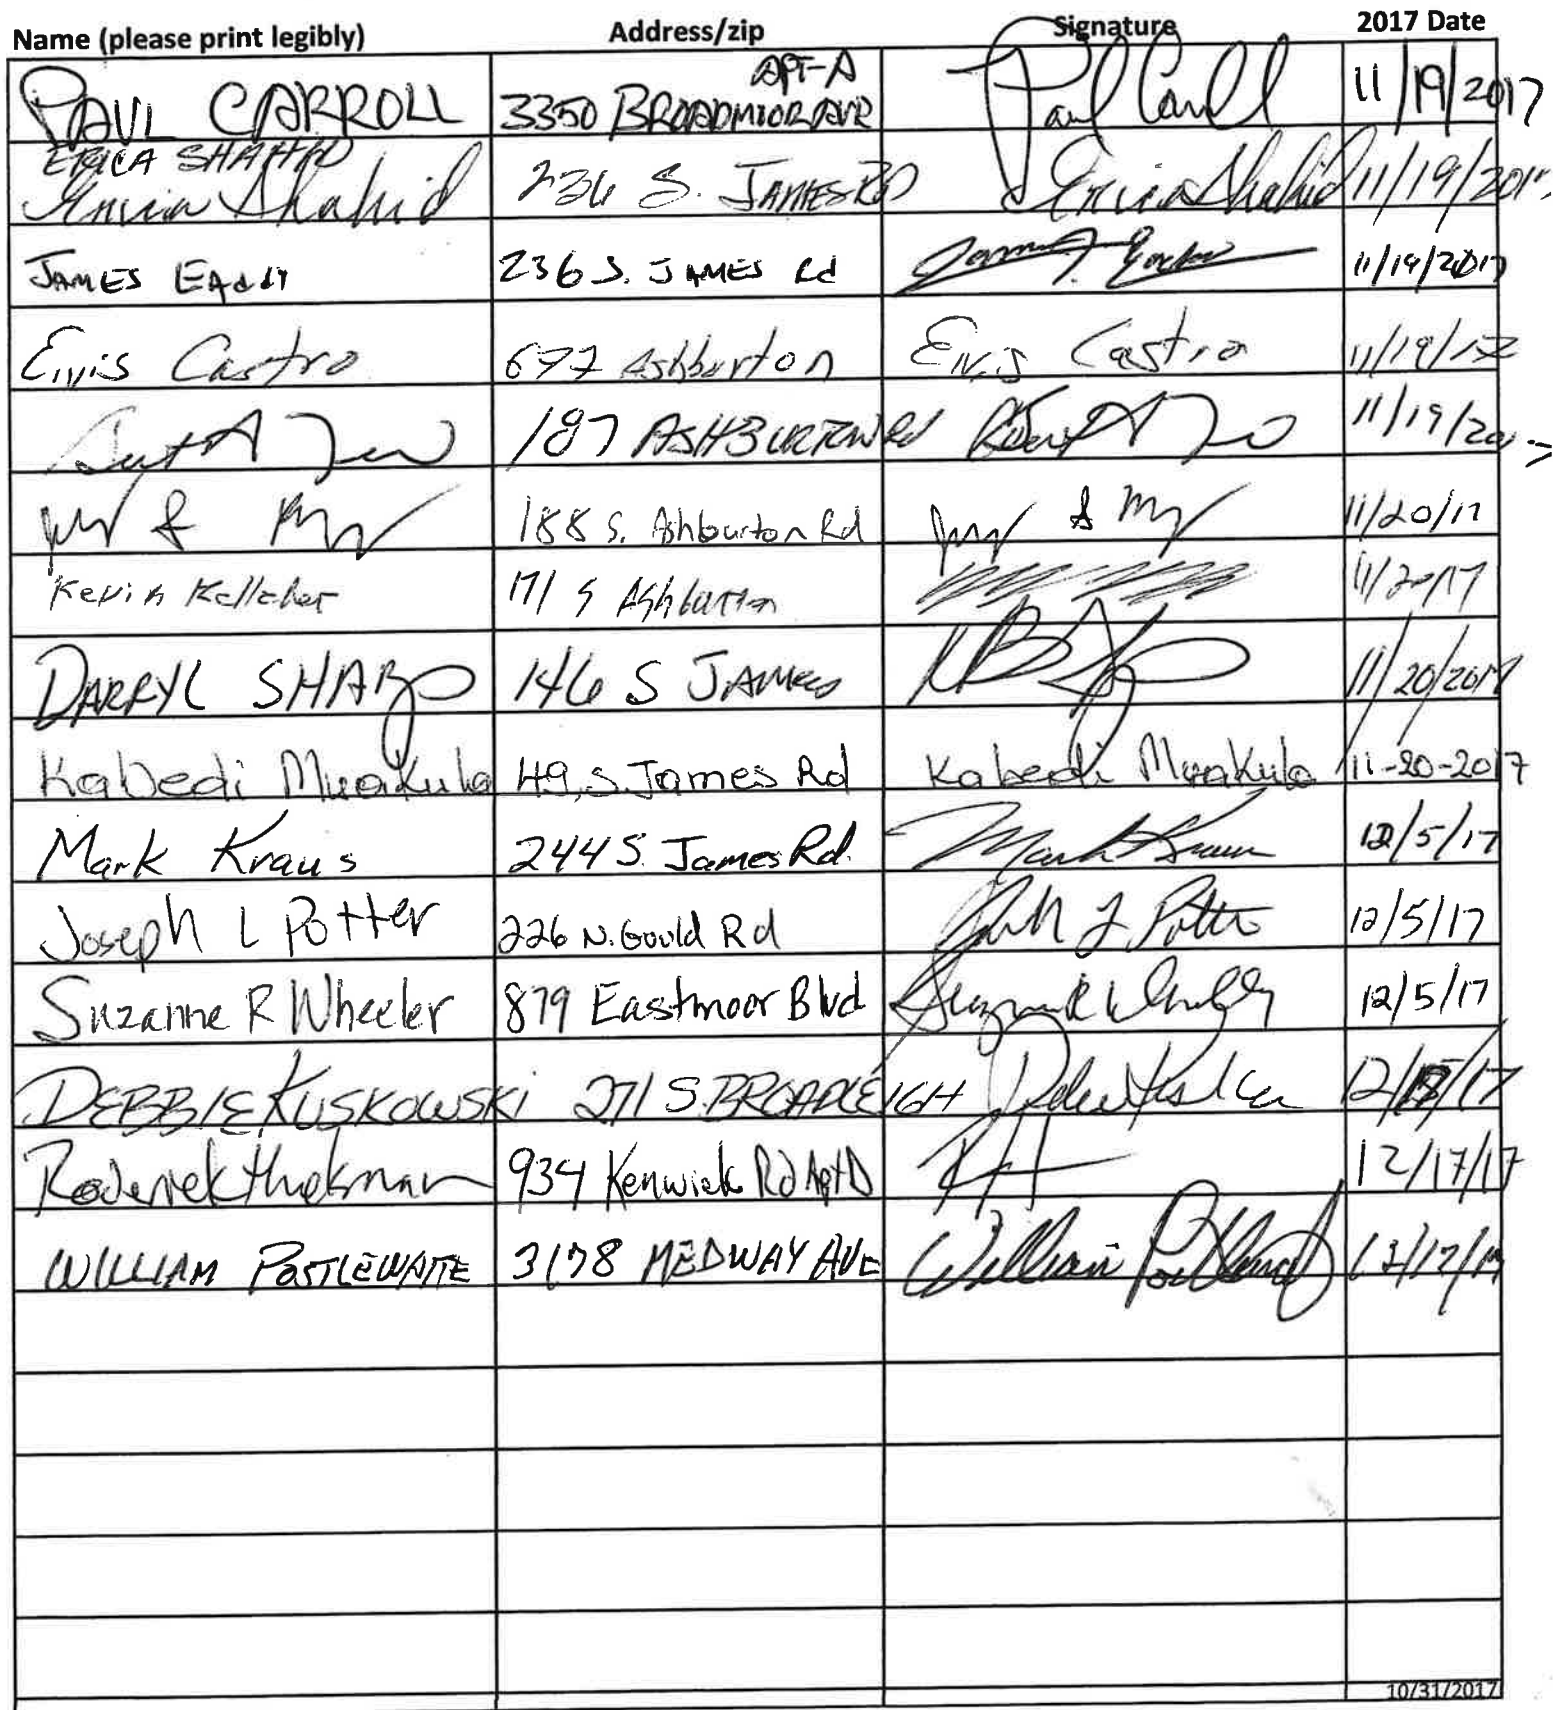 Name (please print legibly) Address/zip Signature 2017 Date
APT-A
PAUL CARROLL 3350 BROADMOOR AVE Paul Carroll 11/19/2017
ERICA SHAHID
Erica Shahid 236 S. JAMES RD Erica Shahid 11/19/2017
JAMES EADDY 236 S. JAMES Rd 11/19/2017
Elvis Castro 677 Ashburton Elvis Castro 11/19/17
187 ASHBURTON Rd 11/19/2017
188 S. Ashburton Rd 11/20/17
Kevin Kelleher 171 S Ashburton 11/20/17
DARRYL SHARP 146 S JAMES 11/20/2017
Kabedi Mwakula 49, S. James Rd Kabedi Mwakula 11-20-2017
Mark Kraus 244 S. James Rd. Mark Kraus 12/5/17
Joseph L Potter 226 N. Gould Rd L Potter 12/5/17
Suzanne R Wheeler 879 Eastmoor Blvd Suzanne R Wheeler 12/5/17
DEBBIE KUSKOWSKI 271 S. BROADLEIGH
Roderick 934 Kenwick Rd Apt D 12/17/17
WILLIAM POSTLEWAITE 3178 MEDWAY AVE William 12/17/17
10/31/2017